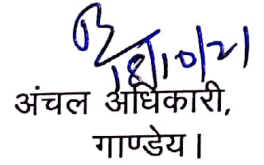 18/10/21
अंचल अधिकारी,
गाण्डेय।